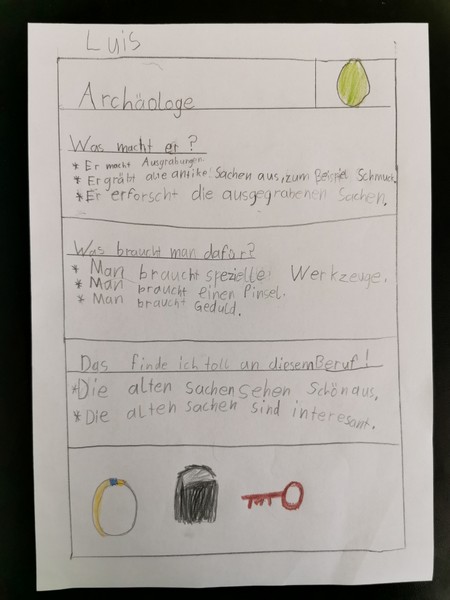 Luis
Archäologe
Was macht er?
* Er macht Ausgrabungen
* Er gräbt alle antike Sachen aus, zum Beispiel Schmuck.
* Er erforscht die ausgegrabenen Sachen.
Was braucht man dafor?
* Man braucht spezielle Werkzeuge.
* Man braucht einen Pinsel.
* Man braucht Geduld.
Das finde ich toll an diesem Beruf!
* Die alten Sachen sehen schön aus.
* Die alten sachen sind interesant.